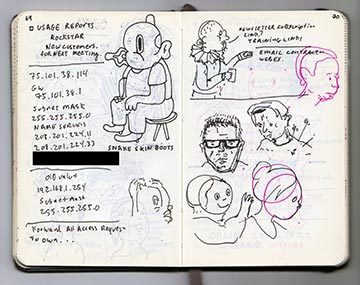 69
□ USAGE REPORTS
ROCKSTAR
NEW CUSTOMERS.
FOR NEXT MEETING
75.101.38.114
GW
75.101.38.1
SUBNET MASK
255.255.255.0
NAME SERVERS
208.201.224.11
208.201.224.33
SNAKE SKIN BOOTS
OLD VALUE
192.168.1.254
SUBNET MASK
255.255.255.0
Forward All Access Request
TO OWN...
NEWSLETTER SUBSCRIPTION
LIND?
TRAINING LIND!
EMAIL CONTRACT